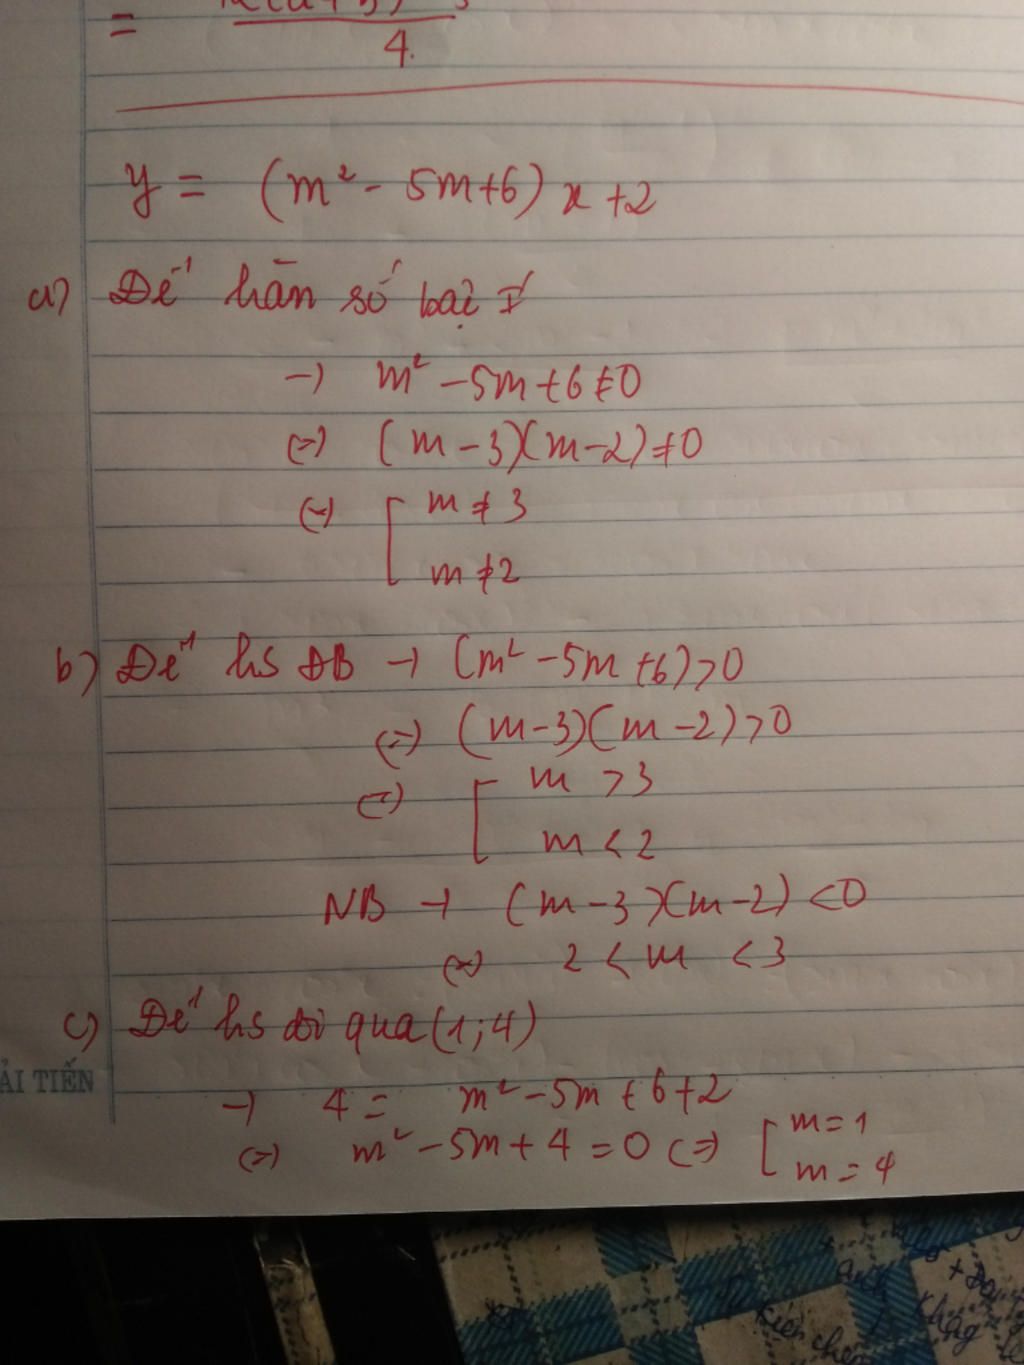 =
4.
y = (m² - 5m+6) x +2
a) Để hàm số bậc I
→ m² - 5m + 6 ≠ 0
(=) (m - 3)(m - 2) ≠ 0
(=) [ m ≠ 3
m ≠ 2
b) Để hs ĐB → (m² - 5m + 6) > 0
(=) (m - 3)(m - 2) > 0
(=) [ m > 3
m < 2
NB → (m - 3)(m - 2) < 0
(=) 2 < m < 3
c) Để hs đi qua (1; 4)
ẢI TIẾN
→ 4 = m² - 5m + 6 + 2
(=) m² - 5m + 4 = 0 (=) [ m = 1
m = 4